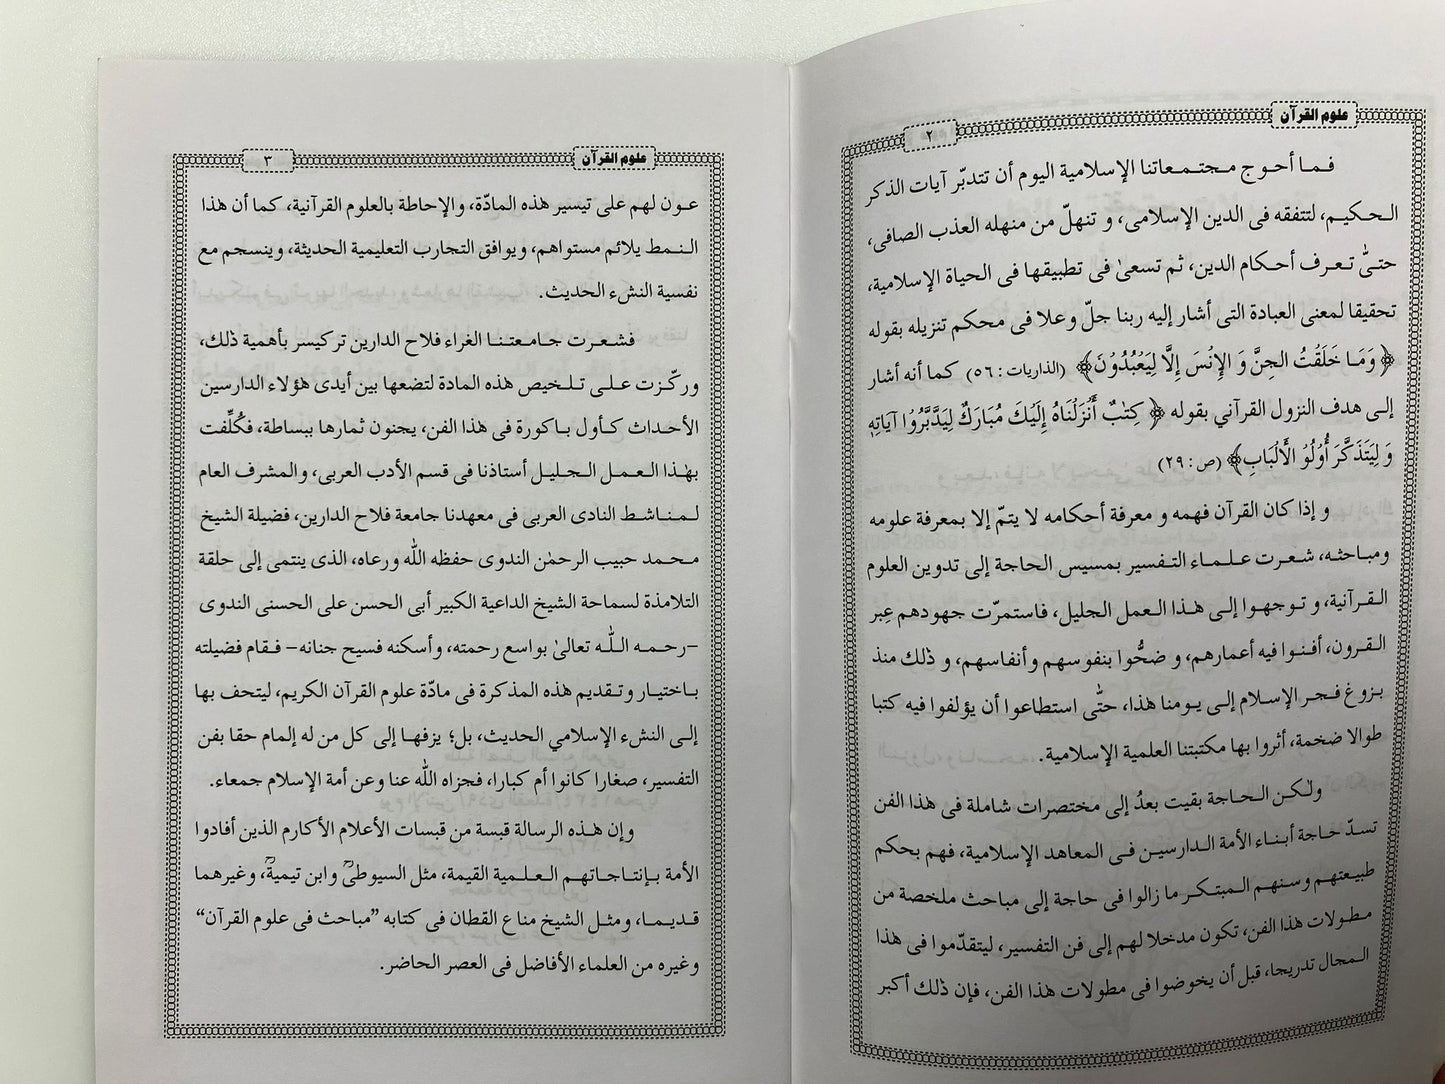 علوم القرآن
٢
فـمـا أحـوج مـجتـمـعاتنا الإسلامية اليوم أن تتدبّر آيات الذكر
الـحكيـم، لتتفقه فى الدين الإسلامى، و تنهلّ من منهله العذب الصافى،
حتىّٰ تـعـرف أحـكام الدين، ثم تسعىٰ فى تطبيقها فى الحياة الإسلامية،
تحقيقا لمعنى العبادة التى أشار إليه ربنا جلّ وعلا فى محكم تنزيله بقوله
﴿وَمَا خَلَقْتُ الجِنَّ وَ الإِنْسَ إِلَّا لِيَعْبُدُوْنَ﴾ (الذاريات : ٥٦) كما أنه أشار
إلـى هدف النزول القرآني بقوله ﴿كِتٰبٌ أَنْزَلْنَاهُ إِلَيْكَ مُبَارَكٌ لِيَدَّبَّرُوْا آيَاتِهٖ
وَ لِيَتَذَكَّرَ أُوْلُوْ الْأَلْبَابِ﴾ (ص : ٢٩)
و إذا كان القرآن فهمه و معرفة أحكامه لا يتمّ إلا بمعرفة علومه
ومبـاحثـه، شـعرت عـلـمـاء التـفسير بمسيس الحاجة إلى تدوين العلوم
الـقـرآنية، و تـوجهـوا إلـى هـذا الـعمل الجليل، فاستمرّت جهودهم عِبر
القـرون، أفـنـوا فيه أعمارهم، و ضحُّوا بنفوسهم وأنفاسهم، و ذلك منذ
بـزوغ فجـر الإسـلام إلـى يـومنا هٰذا، حتّٰى استطاعوا أن يؤلفوا فيه كتبا
طوالا ضخمة، أثروا بها مكتبتنا العلمية الإسلامية.
ولٰـكـن الـحـاجة بقيت بعدُ إلى مختصرات شاملة فى هٰذا الفن
تسدّ حـاجة أبـنـاء الأمة الـدارسيـن فـى المعاهد الإسلامية، فهم بحكم
طبيعتهم وسنهم الـمبتكـر ما زالوا فى حاجة إلى مباحث ملخصة من
مطولات هذا الفن، تكون مدخلا لهم إلى فن التفسير، ليتقدّموا فى هٰذا
الـمجال تدريجا، قبل أن يخوضوا فى مطولات هٰذا الفن، فإن ذلك أكبر
علوم القرآن
٣
عـون لهم على تيسير هذه المادّة، والإحاطة بالعلوم القرآنية، كما أن هذا
النـمط يلائم مستواهم، ويوافق التجارب التعليمية الحديثة، وينسجم مع
نفسية النشء الحديث.
فشـعـرت جـامـعتـنـا الغراء فلاح الدارين تركيسر بأهمية ذلك،
وركّـزت عـلـى تـلـخيص هٰذه المادة لتضعها بين أيدى هؤلاء الدارسين
الأحداث كـأول بـاكورة فى هٰذا الفن، يجنون ثمارها ببساطة، فكُلِّفت
بهٰـذا الـعمـل الـجليـل أستاذنا فى قسم الأدب العربى، والمشرف العام
لـمنـاشـط النادى العربى فى معهدنا جامعة فلاح الدارين، فضيلة الشيخ
محـمـد حبيب الرحمٰن الندوى حفظه اللّٰه ورعاه، الذى ينتمى إلى حلقة
التلامذة لسماحة الشيخ الداعية الكبير أبى الحسن على الحسنى الندوى
–رحمـه الـلّٰه تعالىٰ بواسع رحمته، وأسكنه فسيح جنانه– فـقام فضيلته
بـاختيار وتـقديم هٰذه المذكرة فى مادّة علوم القرآن الكريم، ليتحف بها
إلـى النشء الإسلامي الحديث، بل؛ يزفهـا إلى كل من له إلمام حقا بفن
التفسير، صغارا كانوا أم كبارا، فجزاه اللّٰه عنا وعن أمة الإسلام جمعاء.
وإن هٰـذه الرسالة قبسة من قبسات الأعلام الأكارم الذين أفادوا
الأمة بـإنتاجاتهـم العـلـمية القيمة، مثل السيوطىؒ وابن تيميةؒ، وغيرهما
قـديمـا، ومثـل الشيخ مناع القطان فى كتابه ”مباحث فى علوم القرآن“
وغيره من العلماء الأفاضل فى العصر الحاضر.